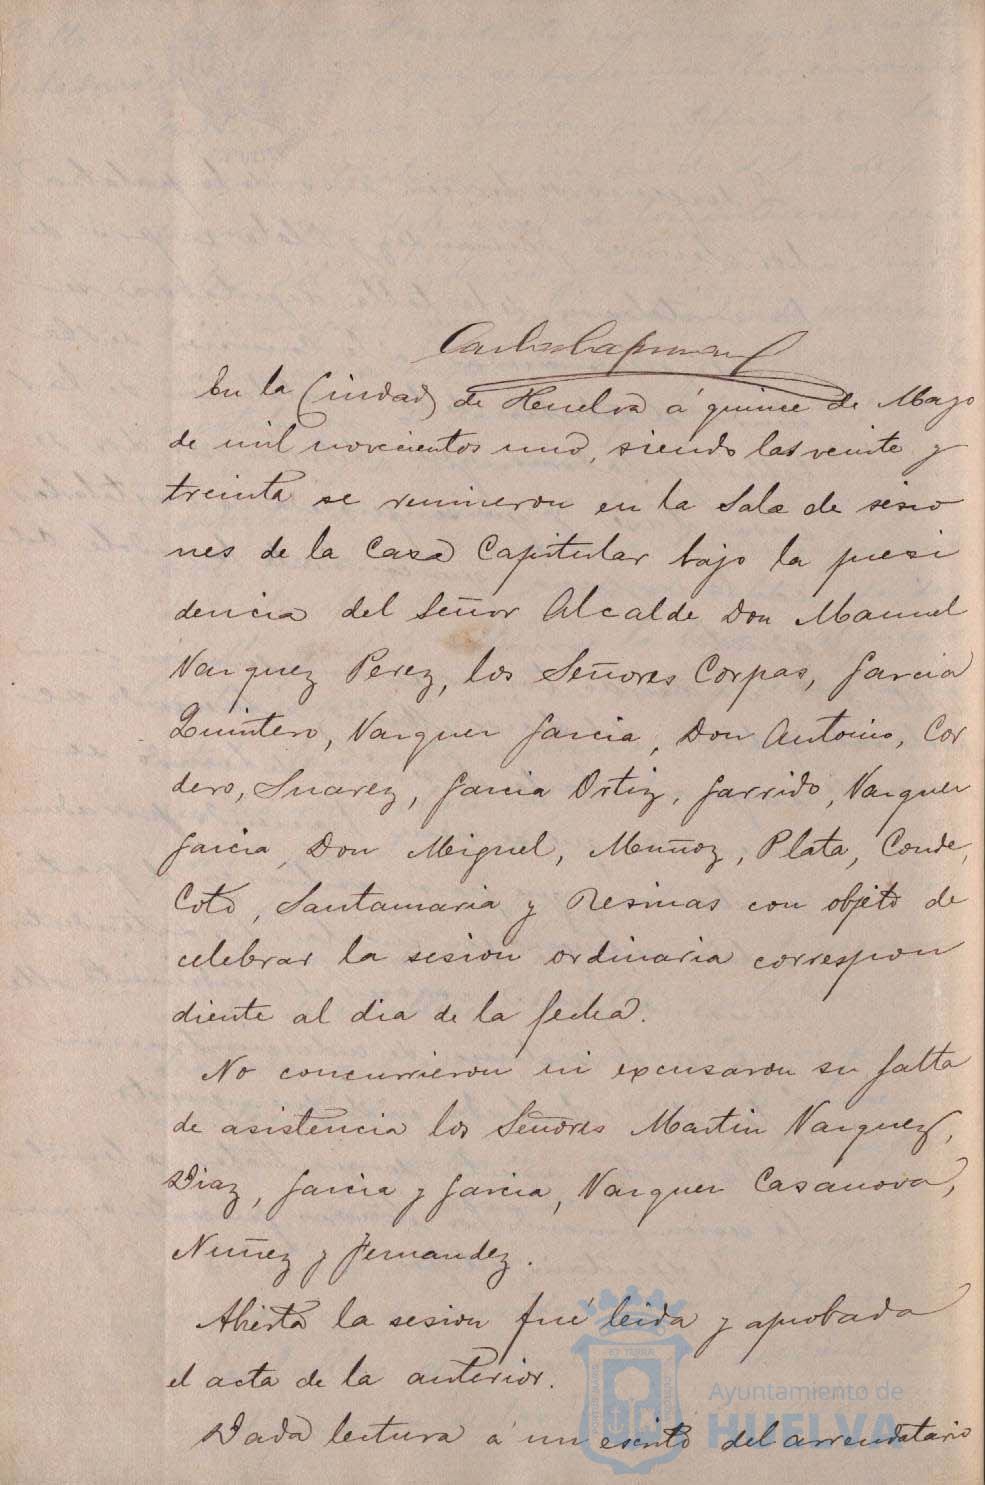 En la Ciudad de Huelva á quince de Mayo
de mil novecientos uno, siendo las veinte y
treinta se reunieron en la Sala de sesio
nes de la Casa Capitular bajo la presi
dencia del Señor Alcalde Don Manuel
Vazquez Perez, los Señores Corpas, Garcia
Quintero, Vazquez Garcia, Don Antonio, Cor
dero, Suarez, Garcia Ortiz, Garrido, Vazquez
Garcia, Don Miguel, Muñoz, Plata, Conde,
Coto, Santamaria y Resinas con objeto de
celebrar la sesion ordinaria correspon
diente al dia de la fecha.
No concurrieron ni excusaron su falta
de asistencia los Señores Martin Vazquez,
Diaz, Garcia y Garcia, Vazquez Casanova,
Nuñez y Fernandez.
Abierta la sesion fué leida y aprobada
el acta de la anterior.
Dada lectura á un escrito del arrendatario
Ayuntamiento de
HUELVA